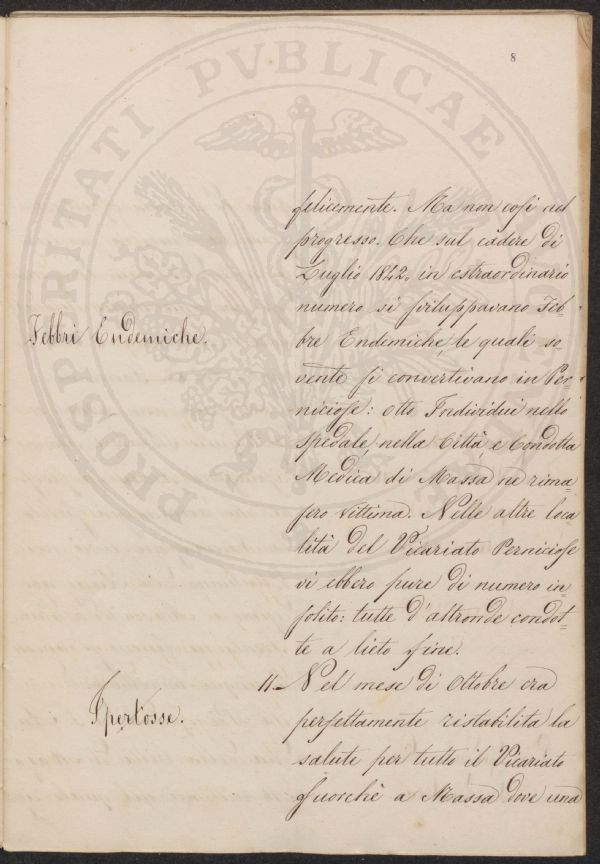 8
PROSPERITATI PVBLICAE
felicemente. Ma non così nel
progresso. Che sul cadere di
Luglio 1842. in estraordinario
numero si sviluppavano Feb-
Febbri Endemiche.
bre Endemiche, le quali so-
vente si convertivano in Per-
niciose: otto Individui nello
spedale, nella Città, e Condotta
Medica di Massa ne rima-
sero vittima. Nelle altre loca-
lità del Vicariato Perniciose
vi ebbero pure di numero in-
solito: tutte d'altronde condot-
te a lieto fine.
11. Nel mese di Ottobre era
Pertosse.
perfettamente ristabilita la
salute per tutto il Vicariato
fuorchè a Massa dove una